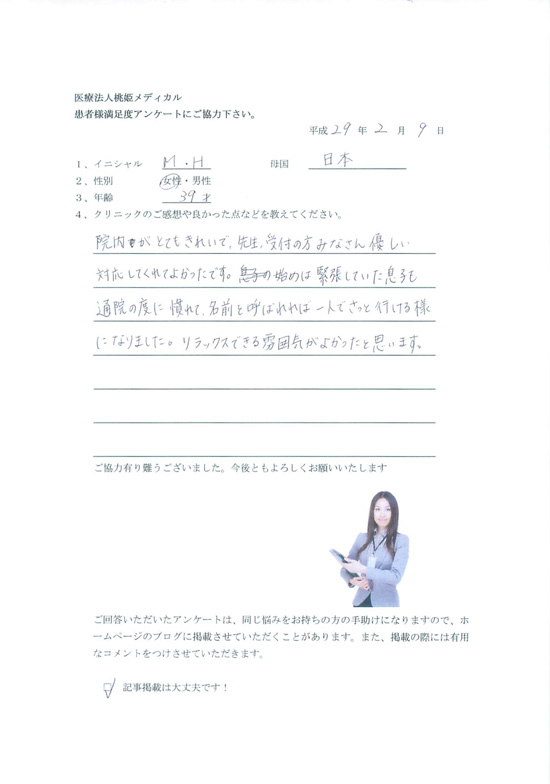 医療法人桃姫メディカル
患者様満足度アンケートにご協力下さい。
平成 29 年 2 月 9 日
1、イニシャル M・H 母国 日本
2、性別 女性・男性
3、年齢 39才
4、クリニックのご感想や良かった点などを教えてください。
院内がとてもきれいで、先生、受付の方みなさん優しい
対応してくれてよかったです。始めは緊張していた息子も
通院の度に慣れて、名前を呼ばれれば一人でさっと行ける様
になりました。リラックスできる雰囲気がよかったと思います。
ご協力有り難うございました。今後ともよろしくお願いいたします
ご回答いただいたアンケートは、同じ悩みをお持ちの方の手助けになりますので、ホ
ームページのブログに掲載させていただくことがあります。また、掲載の際には有用
なコメントをつけさせていただきます。
記事掲載は大丈夫です！